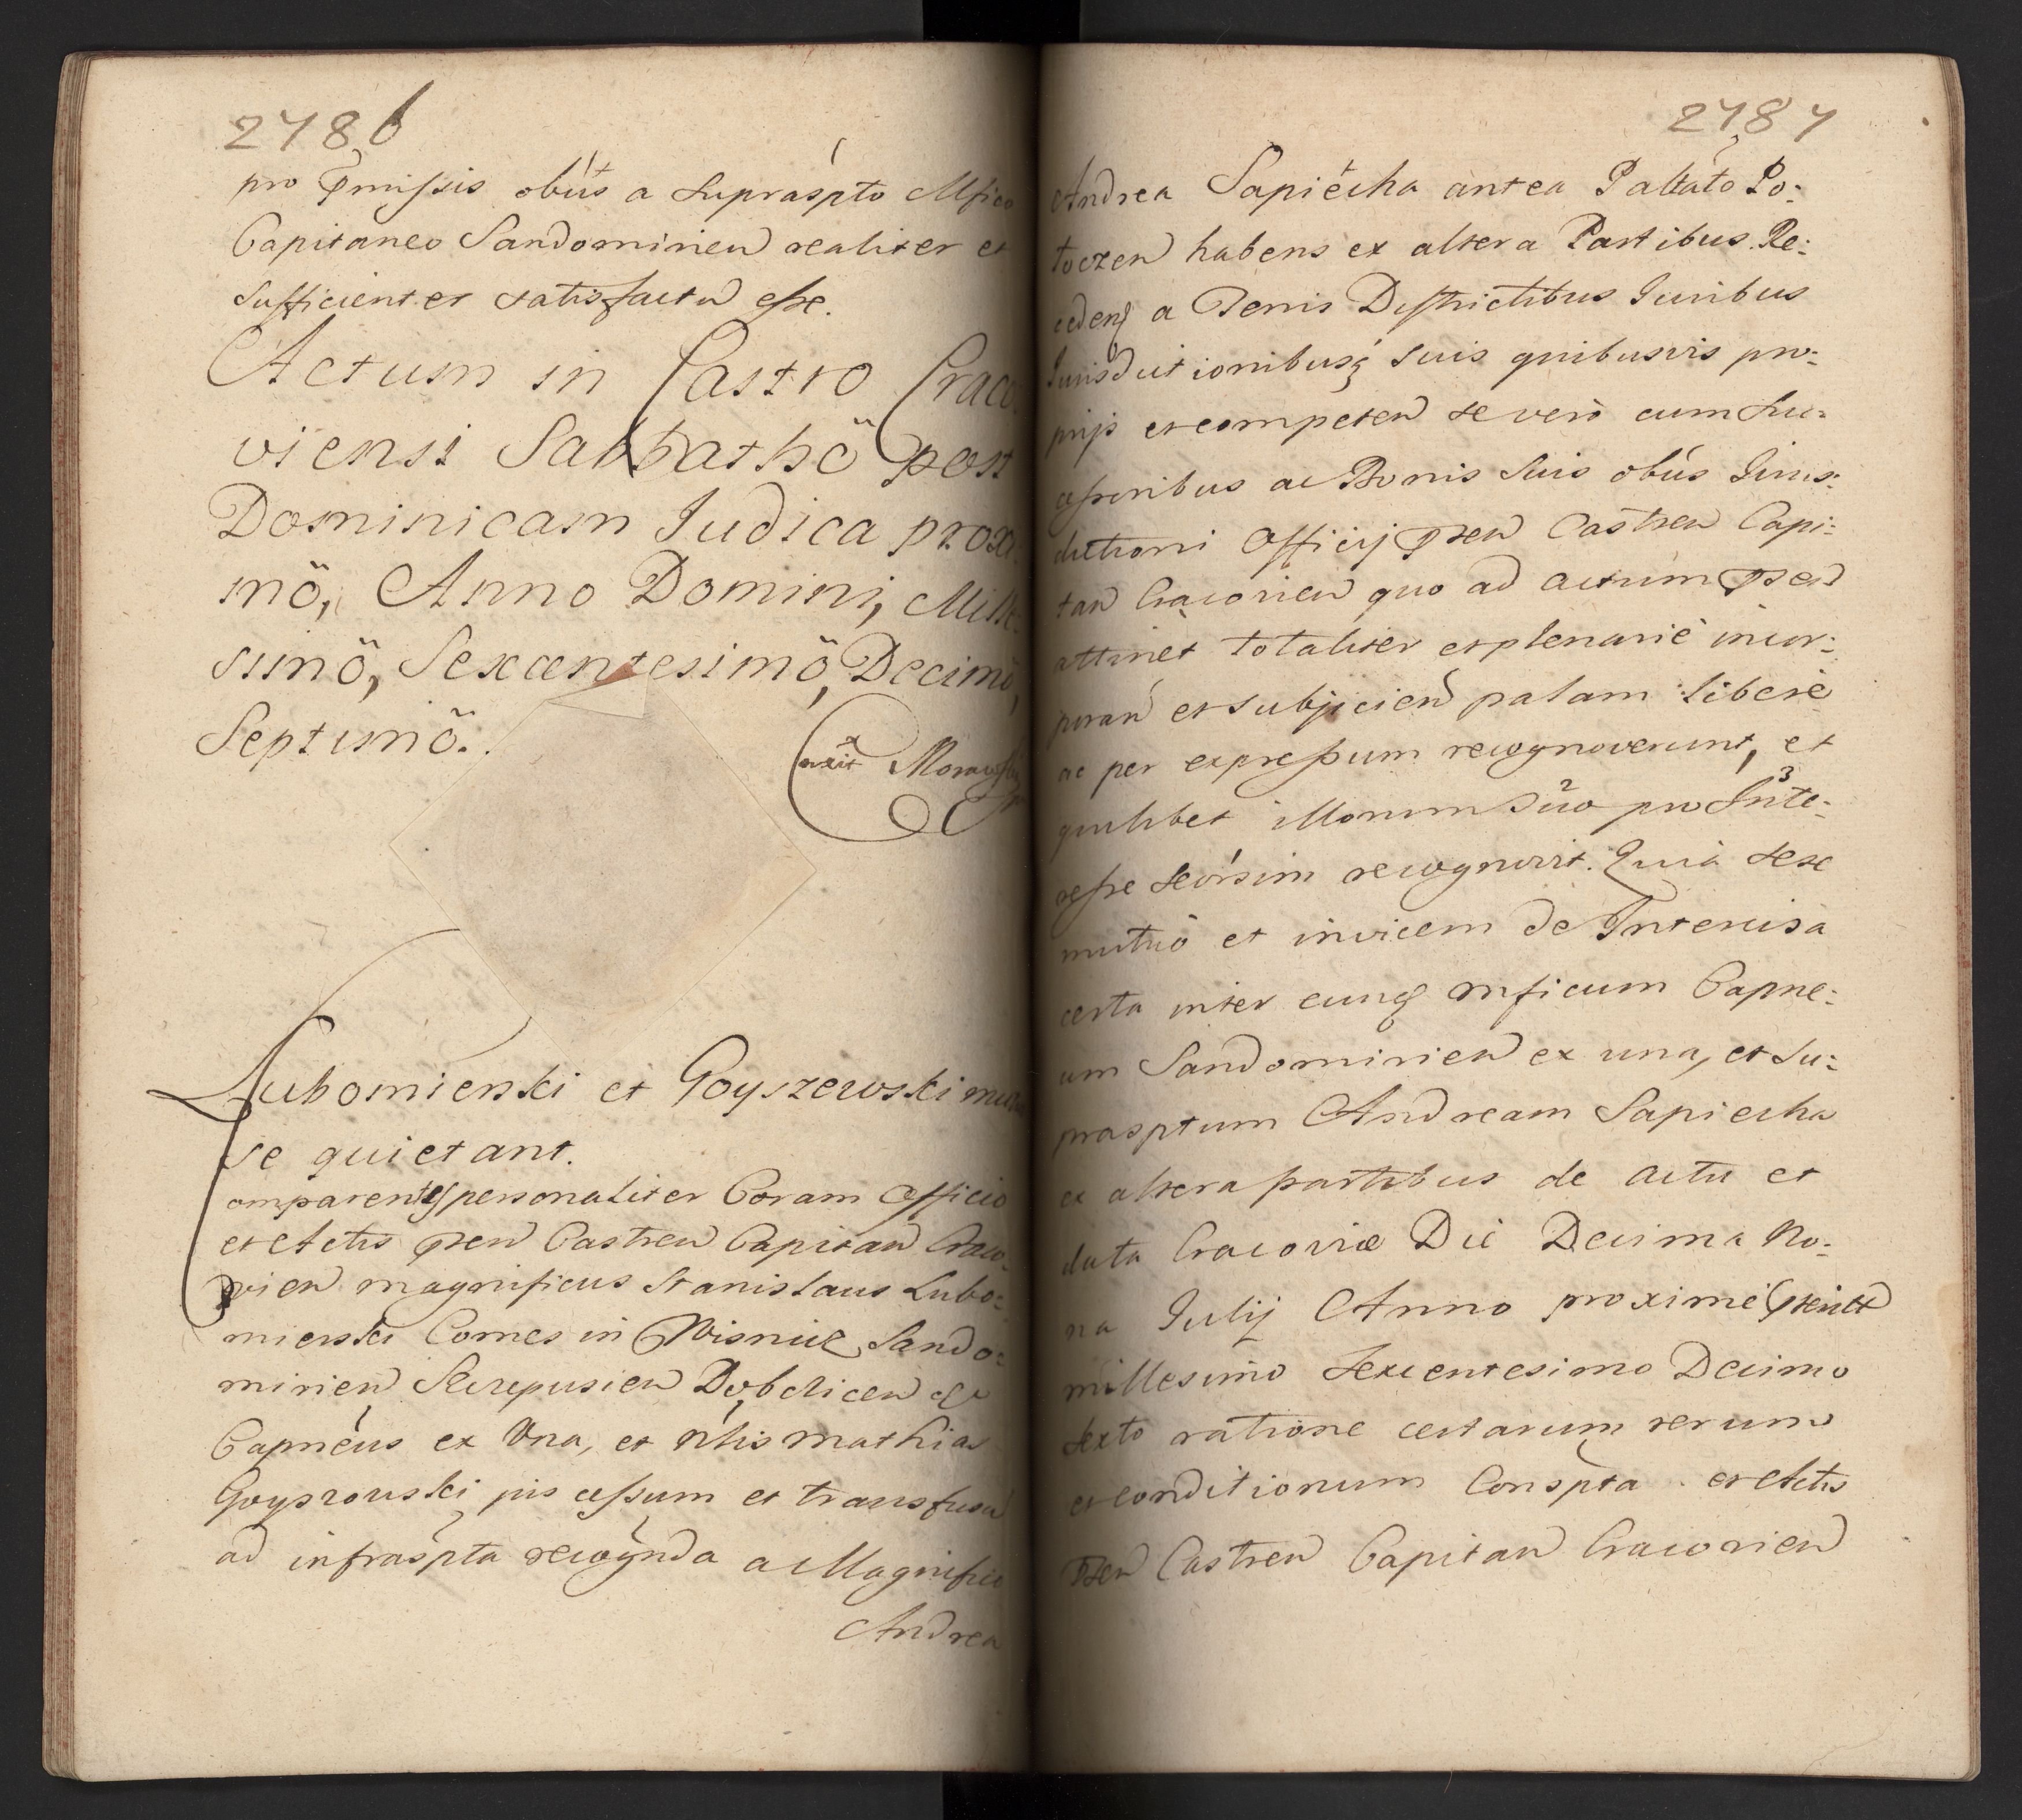 2786
pro p̃missis obûs a supraspto Mfico
Capitaneo Sandomirien realiter et
sufficienter satisfactũ esse.
Actum in Castro Craco
viensi Sabbathö post
Dominicam Judica proxi
mö, Anno Domini, Mille
simö, Sexcentesimö, Decimö,
Septimö.
Morawski
Lubomierski et Goyszewski mutuo
se quietant.
omparentes personaliter Coram Officio
et Actis p̃sen Castren Capitan Craco
vien magnificus Stanislaus Lubo:
mierski Comes in Wisnicz Sando:
mirien Scepusien Dobczicen &c
Capneus ex Una, et Nblis Mathias
Goyszowski jus cessum et transfusũ
ad infraspta recognda a Magnifico
Andrea
2787
Andrea Sapiecha antea Pallato Po:
toczen habens ex altera Partibus. Re:
cedens a Terris Districtibus Juribus
Jurisdictionibusq suis quibusvis pro:
prijs et competen se vero cum Suc:
cessoribus ac Bonis Suis obûs Juris:
dictioni Officij p̃sen Castren Capi:
tan Cracovien quo ad actum p̃sen
attinet totaliter et plenarie incor:
poran et subjicien palam libere
ac per expressum recognoverunt, et
quilibet illorum suo pro Inte:
resse seorsim recognovit. Quia sese
mutuo et invicem de Intercisa
certa inter eunq mficum Capne:
um Sandomirien ex una, et Su:
prasptum Andream Sapiecha
ex altera partibus de actu et
data Cracoviæ Die Decima No:
na Julij Anno proxime
millesimo Sexcentesimo Decimo
Sexto ratione certarum rerum
et conditionum Conspta et Actis
p̃sen Castren Capitan Cracovien